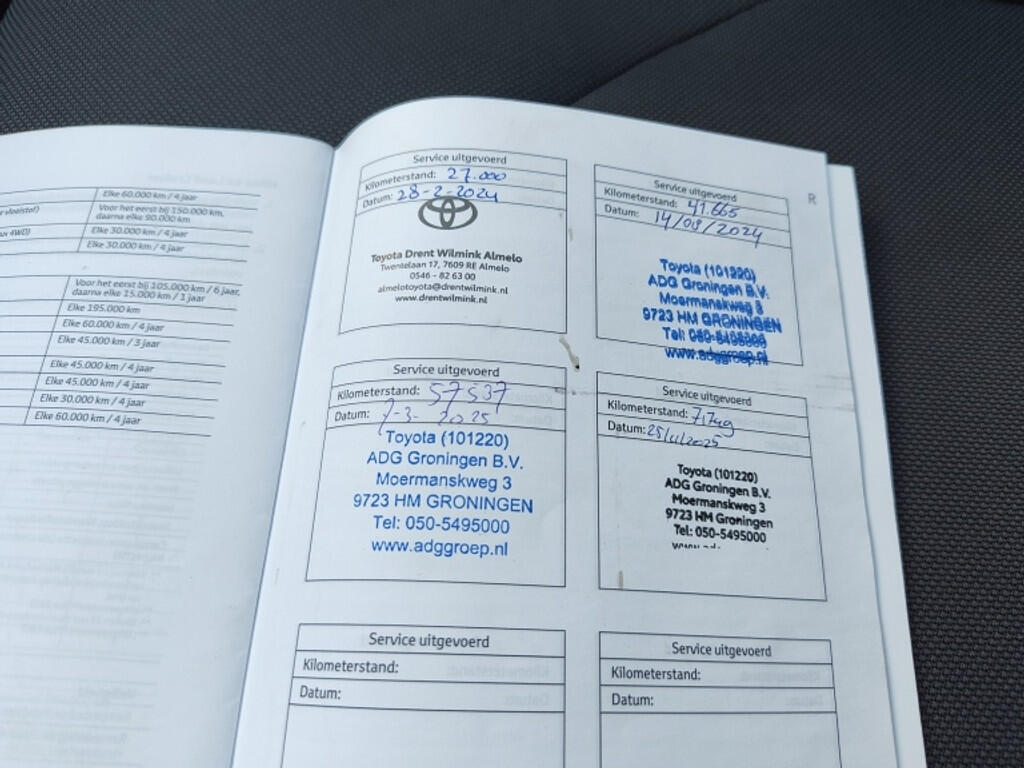 Elke 60.000 km / 4 jaar
vloeistof)
Voor het eerst bij 150.000 km,
daarna elke 90.000 km
4WD)
Elke 30.000 km / 4 jaar
Elke 30.000 km / 4 jaar
Voor het eerst bij 105.000 km / 6 jaar,
daarna elke 15.000 km / 1 jaar
Elke 195.000 km
Elke 60.000 km / 4 jaar
Elke 45.000 km / 3 jaar
Elke 45.000 km / 4 jaar
Elke 45.000 km / 4 jaar
Elke 30.000 km / 4 jaar
Elke 60.000 km / 4 jaar
Service uitgevoerd
Kilometerstand: 27.000
Datum: 28-2-2024
Toyota Drent Wilmink Almelo
Twentelaan 17, 7609 RE Almelo
0546 - 82 63 00
almelotoyota@drentwilmink.nl
www.drentwilmink.nl
Service uitgevoerd
Kilometerstand: 41.665
Datum: 14/08/2024
Toyota (101220)
ADG Groningen B.V.
Moermanskweg 3
9723 HM GRONINGEN
Tel: 050-5495000
www.adggroep.nl
R
Service uitgevoerd
Kilometerstand: 57537
Datum: 7-3-2025
Toyota (101220)
ADG Groningen B.V.
Moermanskweg 3
9723 HM GRONINGEN
Tel: 050-5495000
www.adggroep.nl
Service uitgevoerd
Kilometerstand:
Datum: 25/11/2025
Toyota (101220)
ADG Groningen B.V.
Moermanskweg 3
9723 HM Groningen
Tel: 050-5495000
Service uitgevoerd
Kilometerstand:
Datum:
Service uitgevoerd
Kilometerstand:
Datum: